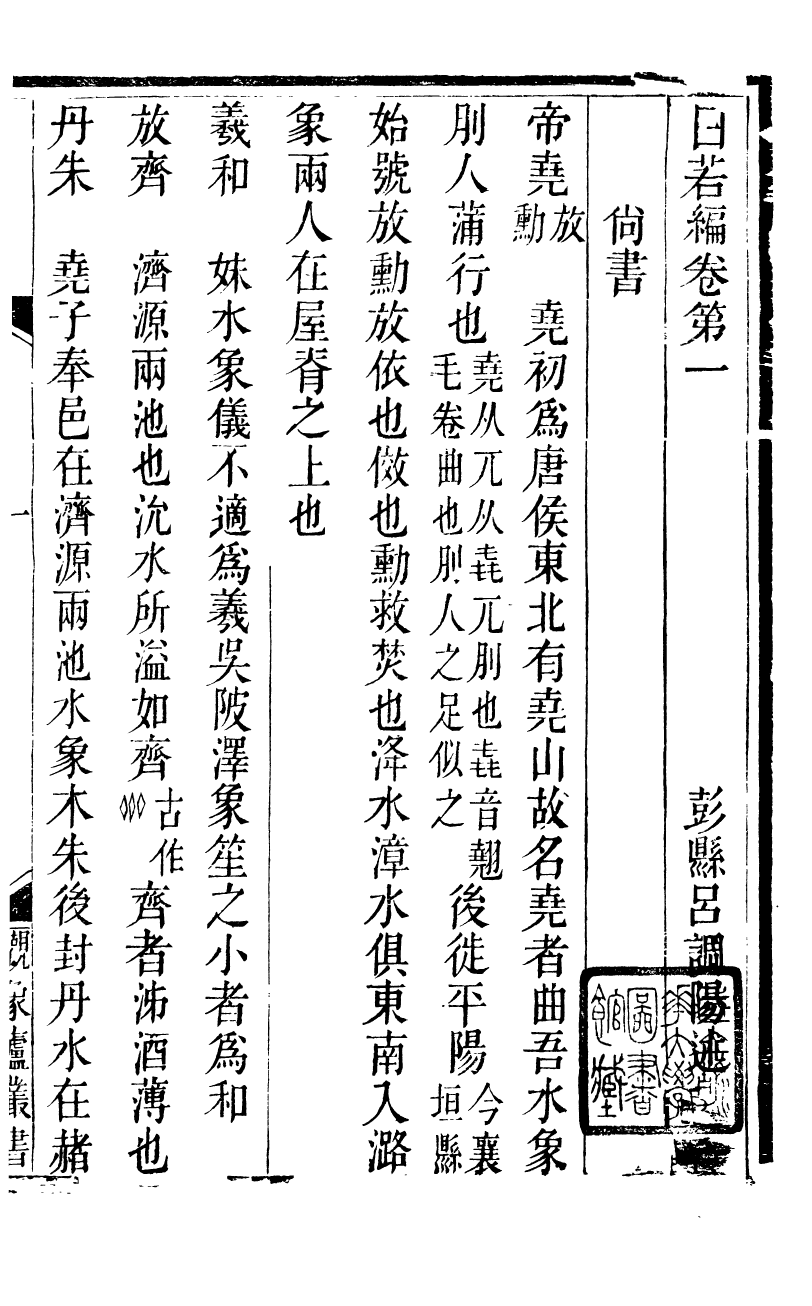 曰若編卷第一
彭縣呂調陽述
尙書
帝堯放勳 堯初爲唐侯東北有堯山故名堯者曲吾水象
刖人蒲行也堯从兀从垚兀刖也垚音翹毛卷曲也刖人之足似之後徙平陽今襄垣縣
始號放勳放依也倣也勳救焚也洚水漳水俱東南入潞
象兩人在屋脊之上也
羲和 妹水象儀不適爲羲吳陂澤象笙之小者爲和
放齊 濟源兩池也沇水所溢如齊古作𠫼齊者泲酒薄也
丹朱 堯子奉邑在濟源兩池水象木朱後封丹水在赭
一
觀象廬叢書
圖書館藏